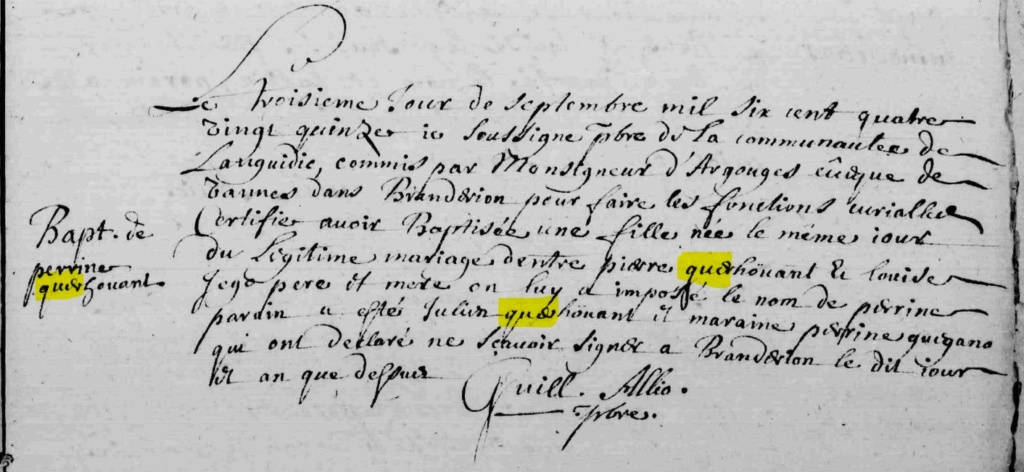 Le troisieme Jour de septembre mil six cent quatre
vingt quinze ie soussigne pbre de la communautee de
Languidic, commis par Monsigneur d'Argouges evêque de
Vannes dans Branderion pour faire les fonctions curialles
Certifie avoir Baptisée une fille née le méme iour
Bapt. de
perrine
querhouant
du Légitime mariage dentre pierre querhöuant Et louise
Jego pere et mere on luy a imposé le nom de perrine
parain a esté Julien querhöuant et maraine perrine quegano
qui ont declaré ne scavoir signer a Branderion le dit iour
et an que dessus
Guill. Allio.
pbre.